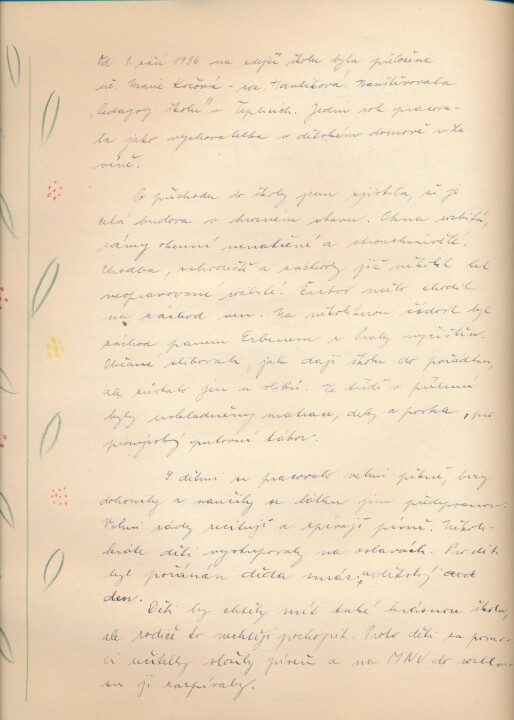 Od 1. září 1956 na zdejší školu byla přeložena
uč. Marie Kozová – roz. Havlíková. Navštěvovala
"Pedagog. školu" v Teplicích. Jeden rok pracova-
la jako vychovatelka v dětském domově v
víně.
Po příchodu do školy jsem zjistila, že je
celá budova v hrozném stavu. Okna rozbitá,
rámy okenní nenatřené a
Chodba, schodiště a záchody již několik let
neopravované, zašlé! Žactvo mělo chodit
na záchod ven. Na několikerou žádost byl
záchod panem Erbenem z vyčištěn.
Občané slibovali, jak dají školu do pořádku,
ale zůstalo jen u slibů. Ve třídě v přízemí
byly uskladněny matrace, deky a postele, pro
pionýrský putovní tábor.
S dětmi se pracovalo velmi pěkně, brzy
dohonily a naučily se látku jim předepsanou.
Velmi rády recitují a zpívají písně. Několi-
kráte děti vystupovaly na oslavách. Pro děti
byl pořádán děda mráz, a dětský
den.
Děti by chtěly mít také krásnou školu,
ale rodiče to nechtějí pochopit. Proto děti za pomo-
ci učitelky složily píseň a na MNV do rozhla-
su ji zazpívaly.